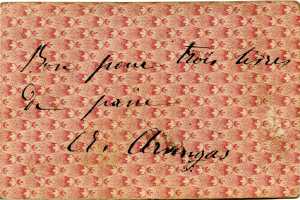 Bon pour trois livres
de pain